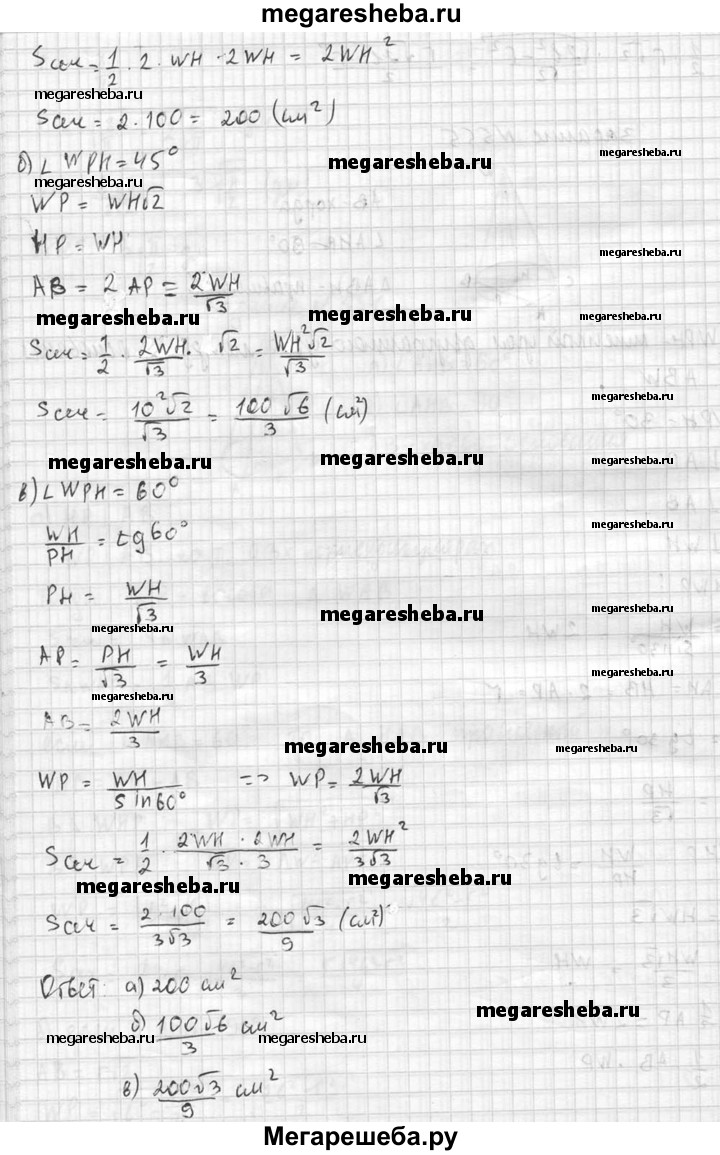 megaresheba.ru
Sсеч = 1/2 · 2 · WH · 2WH = 2WH²
megaresheba.ru
Sсеч = 2 · 100 = 200 (см²)
megaresheba.ru
б) ∠ WPH = 45°
megaresheba.ru
megaresheba.ru
WP = WH√2
HP = WH
megaresheba.ru
AB = 2 AP = 2WH/√3
megaresheba.ru
megaresheba.ru
megaresheba.ru
Sсеч = 1/2 · 2WH/√3 · √2 = WH²√2/√3
megaresheba.ru
Sсеч = 10²√2/√3 = 100√6/3 (см²)
megaresheba.ru
megaresheba.ru
megaresheba.ru
в) ∠ WPH = 60°
megaresheba.ru
WH/PH = tg60°
PH = WH/√3
megaresheba.ru
megaresheba.ru
megaresheba.ru
AP = PH/√3 = WH/3
megaresheba.ru
megaresheba.ru
AB = 2WH/3
megaresheba.ru
megaresheba.ru
WP = WH/sin60° => WP = 2WH/√3
Sсеч = 1/2 · 2WH · 2WH/√3 · 3 = 2WH²/3√3
megaresheba.ru
megaresheba.ru
Sсеч = 2·100/3√3 = 200√3/9 (см²)
Ответ: а) 200 см²
megaresheba.ru
б) 100√6/3 см²
megaresheba.ru
megaresheba.ru
в) 200√3/9 см²
Мегарешеба.ру